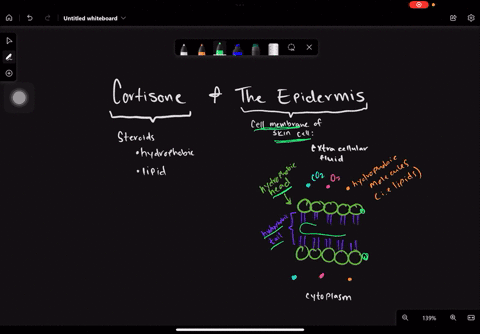 Untitled whiteboard
Cortisone & The Epidermis
Steroids
• hydrophobic
• lipid
Cell membrane of
skin cell:
extra cellular
fluid
CO₂ O₂
hydrophobic
molecules
(i.e lipids)
head
tail
cytoplasm
139%